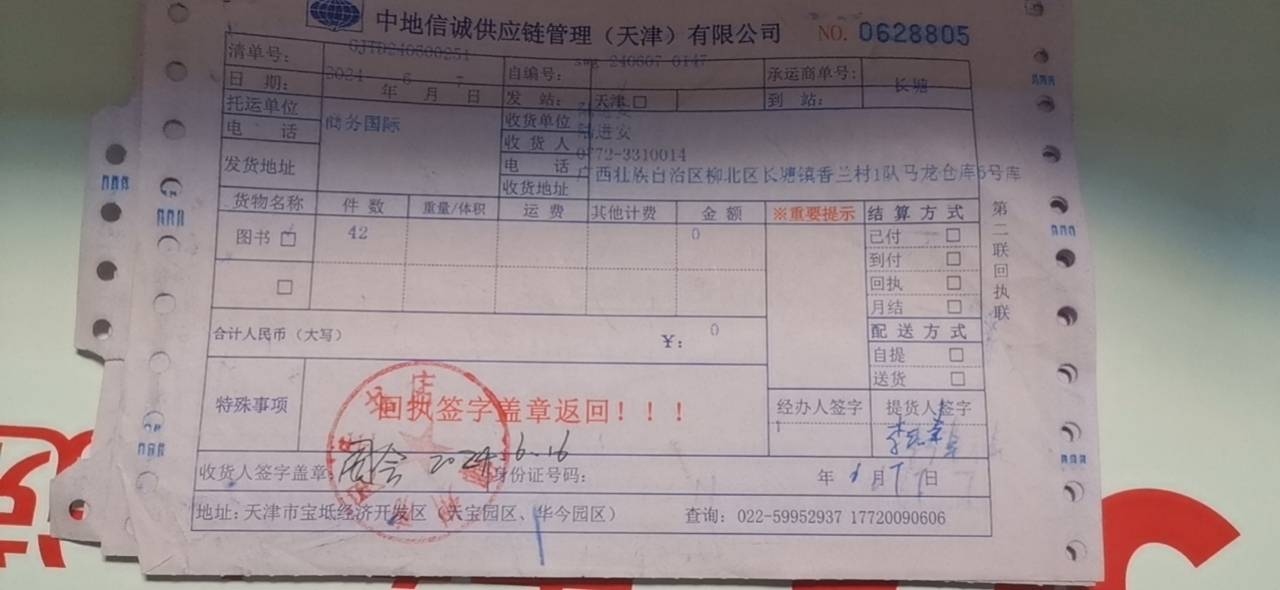 中地信诚供应链管理（天津）有限公司 NO. 0628805
清单号: GJTD240600251 自编号: smg-240607-0147 承运商单号: 长塘
日 期: 2024 年 6 月 7 日 发 站: 天津□ 到 站:
托运单位 商务国际 收货单位 陆进安
电 话 收 货 人 陆进安
发货地址 电 话 0772-3310014
收货地址 广西壮族自治区柳北区长塘镇香兰村1队马龙仓库5号库
货物名称 件 数 重量/体积 运 费 其他计费 金 额 ※重要提示 结 算 方 式
图书 42 0 已付 □
到付 □
□ 回执 □
月结 □
合计人民币（大写） ¥: 0 配 送 方 式
自提 □
送货 □
特殊事项 回执签字盖章返回！！！ 经办人签字 提货人签字
收货人签字盖章: 2024.6.16 身份证号码: 年 6 月 7 日
地址: 天津市宝坻经济开发区（天宝园区、华今园区） 查询: 022-59952937 17720090606
第二联回执联